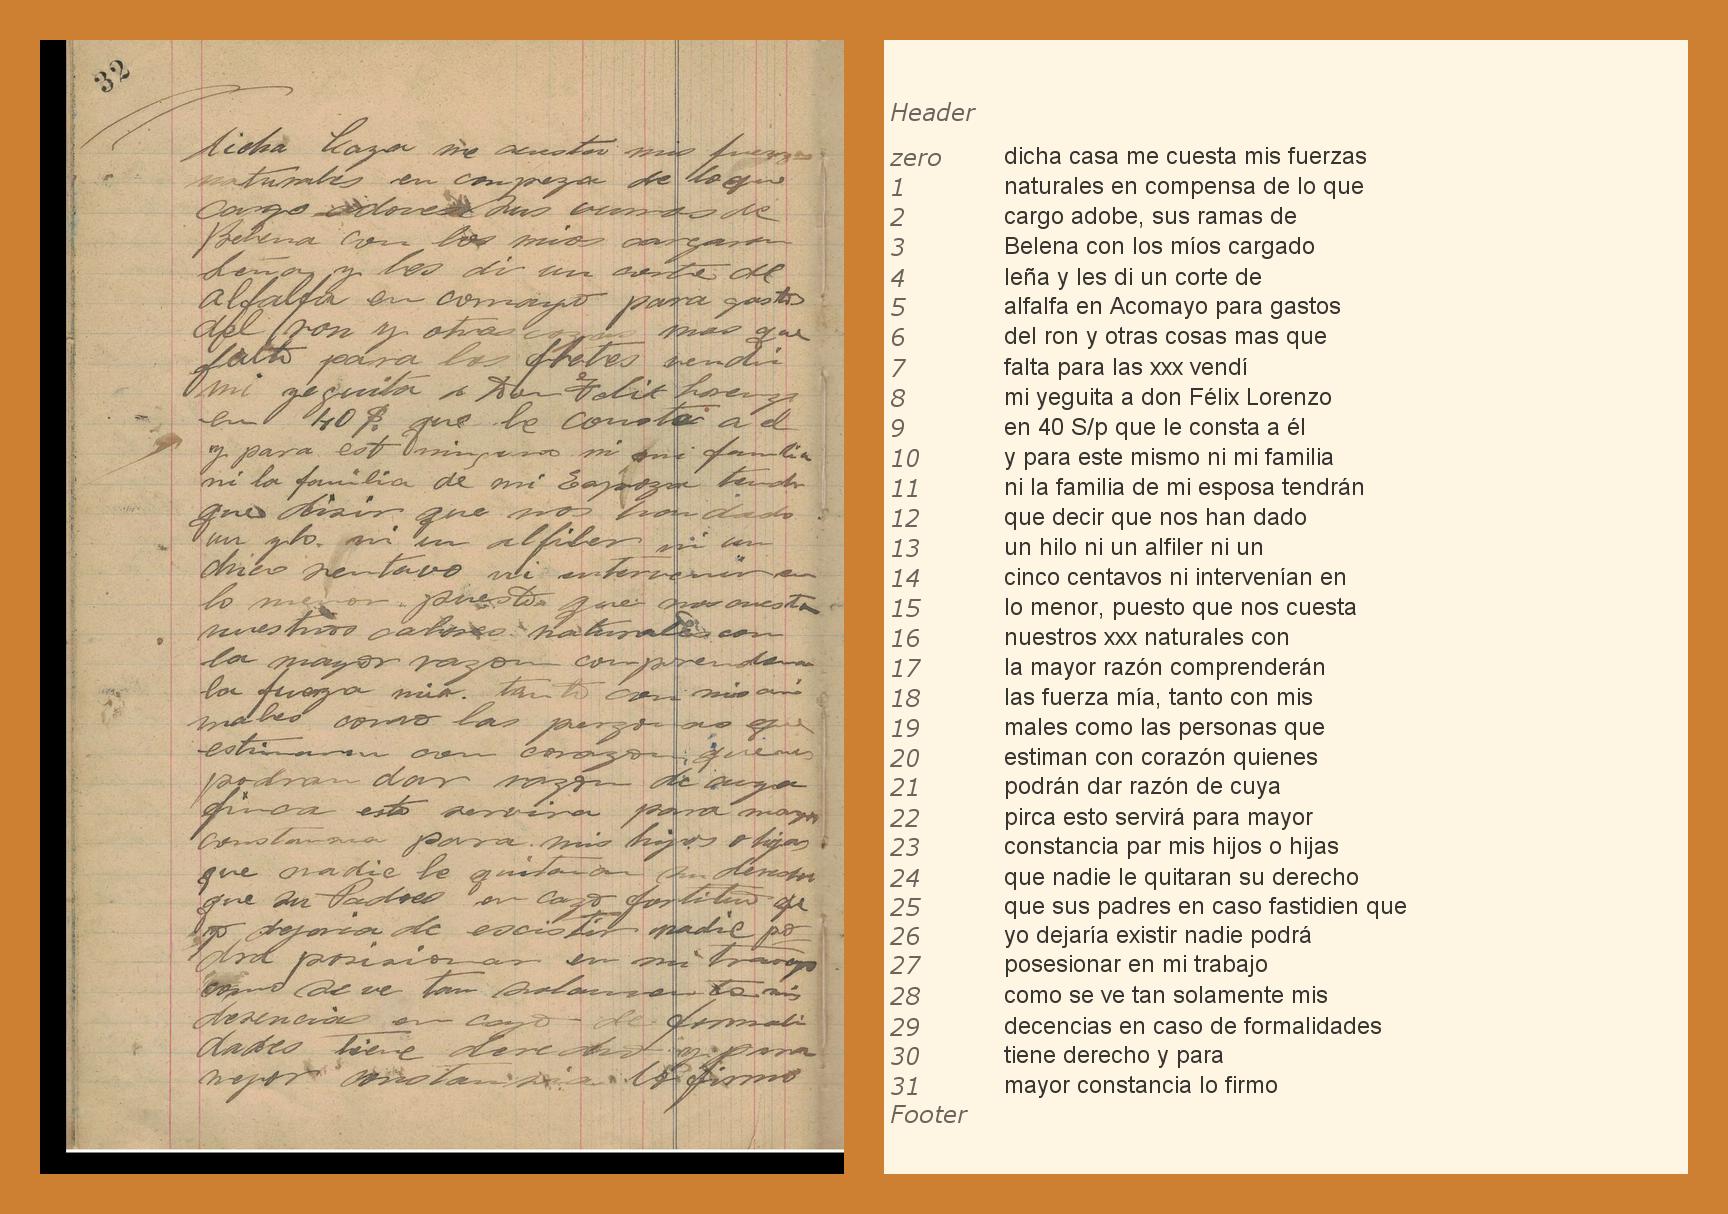 32
dicha Caza me cuesta mis fuerzas
naturales en conpeza de lo que
cargo adoves sus vurros de
Belena con los mios cargaron
leña y les di un corte de
alfalfa en comayo para gasto
del ron y otras cozas mas que
falto para los fletes vendi
mi yeguita a Don Felix Lorenzo
en 40 $. que le consta a el
y para esto ninguno ni mi familia
ni la familia de mi Espoza tendra
que disir que nos han dado
un ylo ni un alfiler ni un
sinco sentavo ni intervenir en
lo menor puesto que nos cuesta
nuestros calores naturales con
la mayor razon comprendera
la fuerza mia. tanto con mis ani
males como las perzonas que
estimaron con corazon, quienes
podran dar razon de cuya
finca esto servira para mayor
constansia para mis hijos o hijas
que nadie le quitaran su derecho
que su Padres en cazo fortituo que
yo dejaria de escistir nadie po
dra posisionar en mi travajo
como se ve tan solamente mis
desencias en cazo de formali
dades tiene derecho y para
mejor constansia lo firmo
Header
zero dicha casa me cuesta mis fuerzas
1 naturales en compensa de lo que
2 cargo adobe, sus ramas de
3 Belena con los míos cargado
4 leña y les di un corte de
5 alfalfa en Acomayo para gastos
6 del ron y otras cosas mas que
7 falta para las xxx vendí
8 mi yeguita a don Félix Lorenzo
9 en 40 S/p que le consta a él
10 y para este mismo ni mi familia
11 ni la familia de mi esposa tendrán
12 que decir que nos han dado
13 un hilo ni un alfiler ni un
14 cinco centavos ni intervenían en
15 lo menor, puesto que nos cuesta
16 nuestros xxx naturales con
17 la mayor razón comprenderán
18 las fuerza mía, tanto con mis
19 males como las personas que
20 estiman con corazón quienes
21 podrán dar razón de cuya
22 pirca esto servirá para mayor
23 constancia par mis hijos o hijas
24 que nadie le quitaran su derecho
25 que sus padres en caso fastidien que
26 yo dejaría existir nadie podrá
27 posesionar en mi trabajo
28 como se ve tan solamente mis
29 decencias en caso de formalidades
30 tiene derecho y para
31 mayor constancia lo firmo
Footer